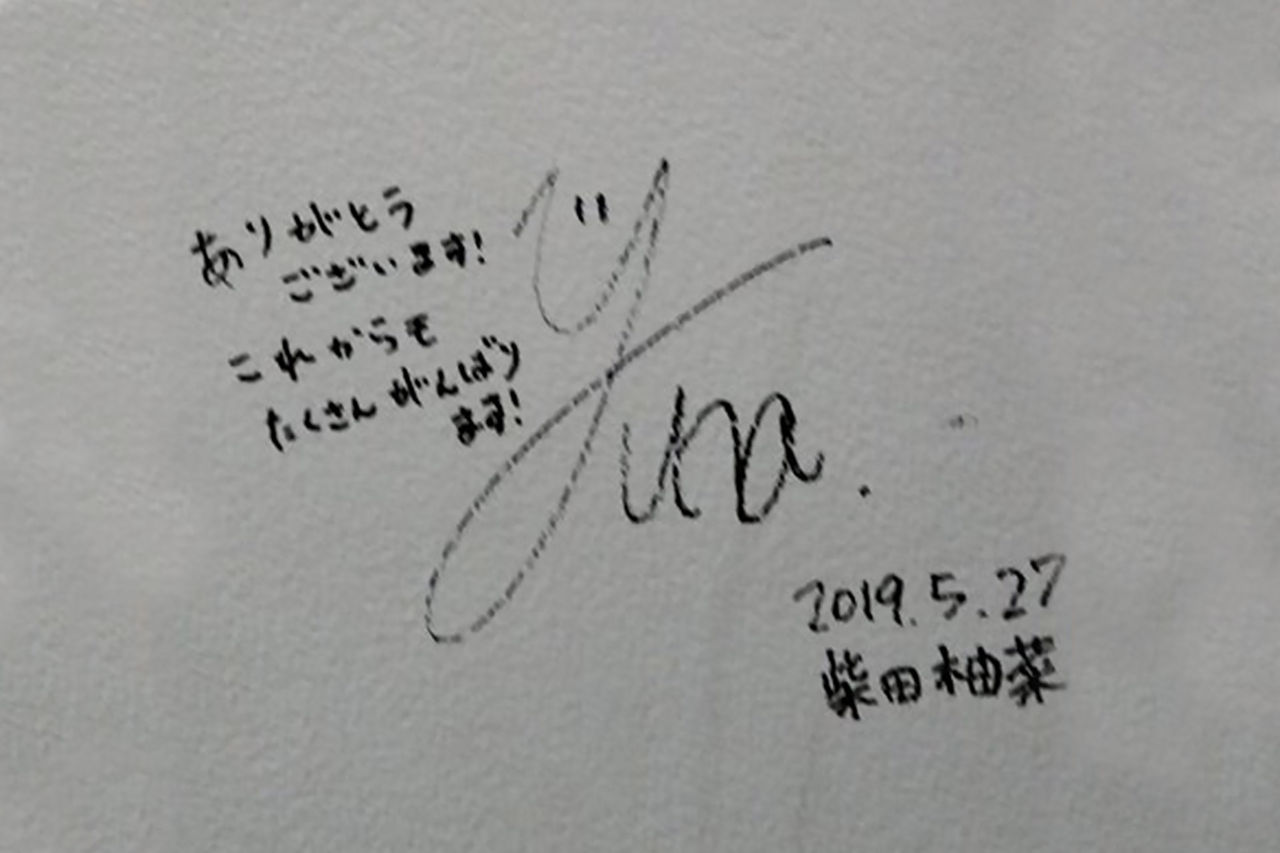 ありがとう
ございます!
これからも
たくさんがんばり
ます!
Yuna.
2019.5.27
柴田柚菜